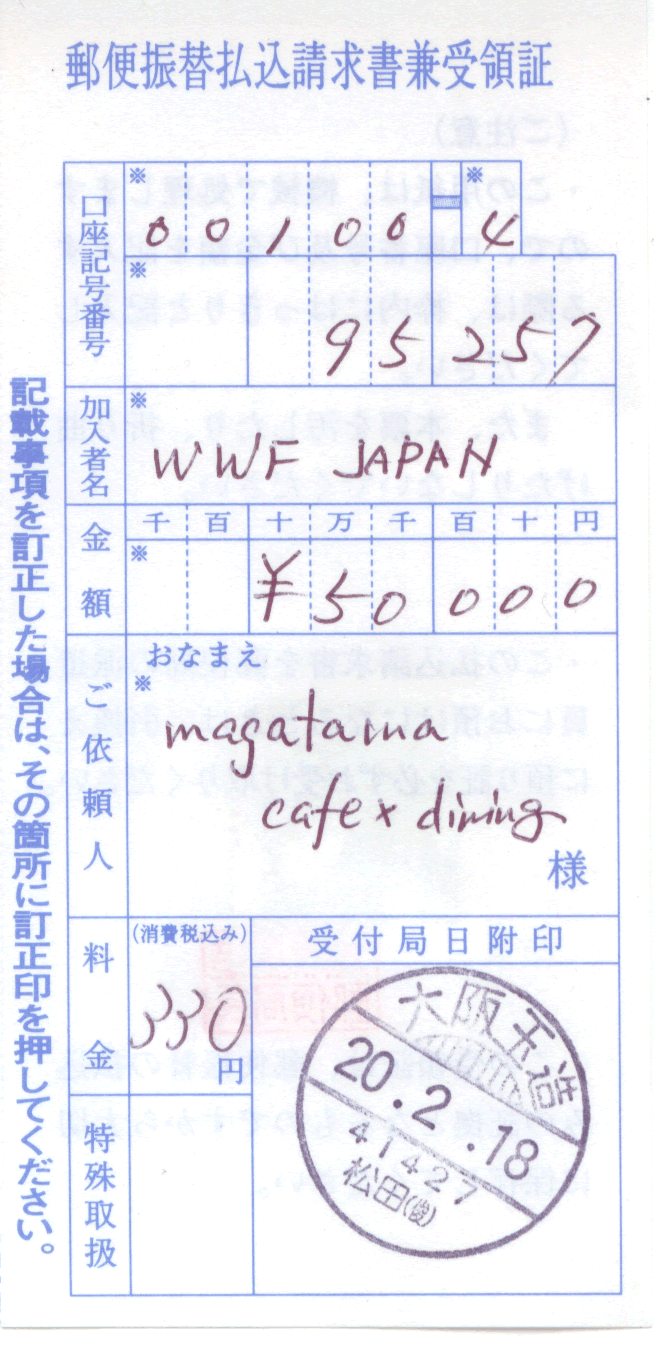 郵便振替払込請求書兼受領証
口座記号番号
※ ※
00100-4
※
95257
加入者名
※
WWF JAPAN
金額
千 百 十 万 千 百 十 円
※
¥50000
ご依頼人
おなまえ
※
magatama
cafe x dining
様
料金
(消費税込み)
330
円
特殊取扱
受付局日附印
大阪玉造
20.2.18
41427
松田(俊)
記載事項を訂正した場合は、その箇所に訂正印を押してください。